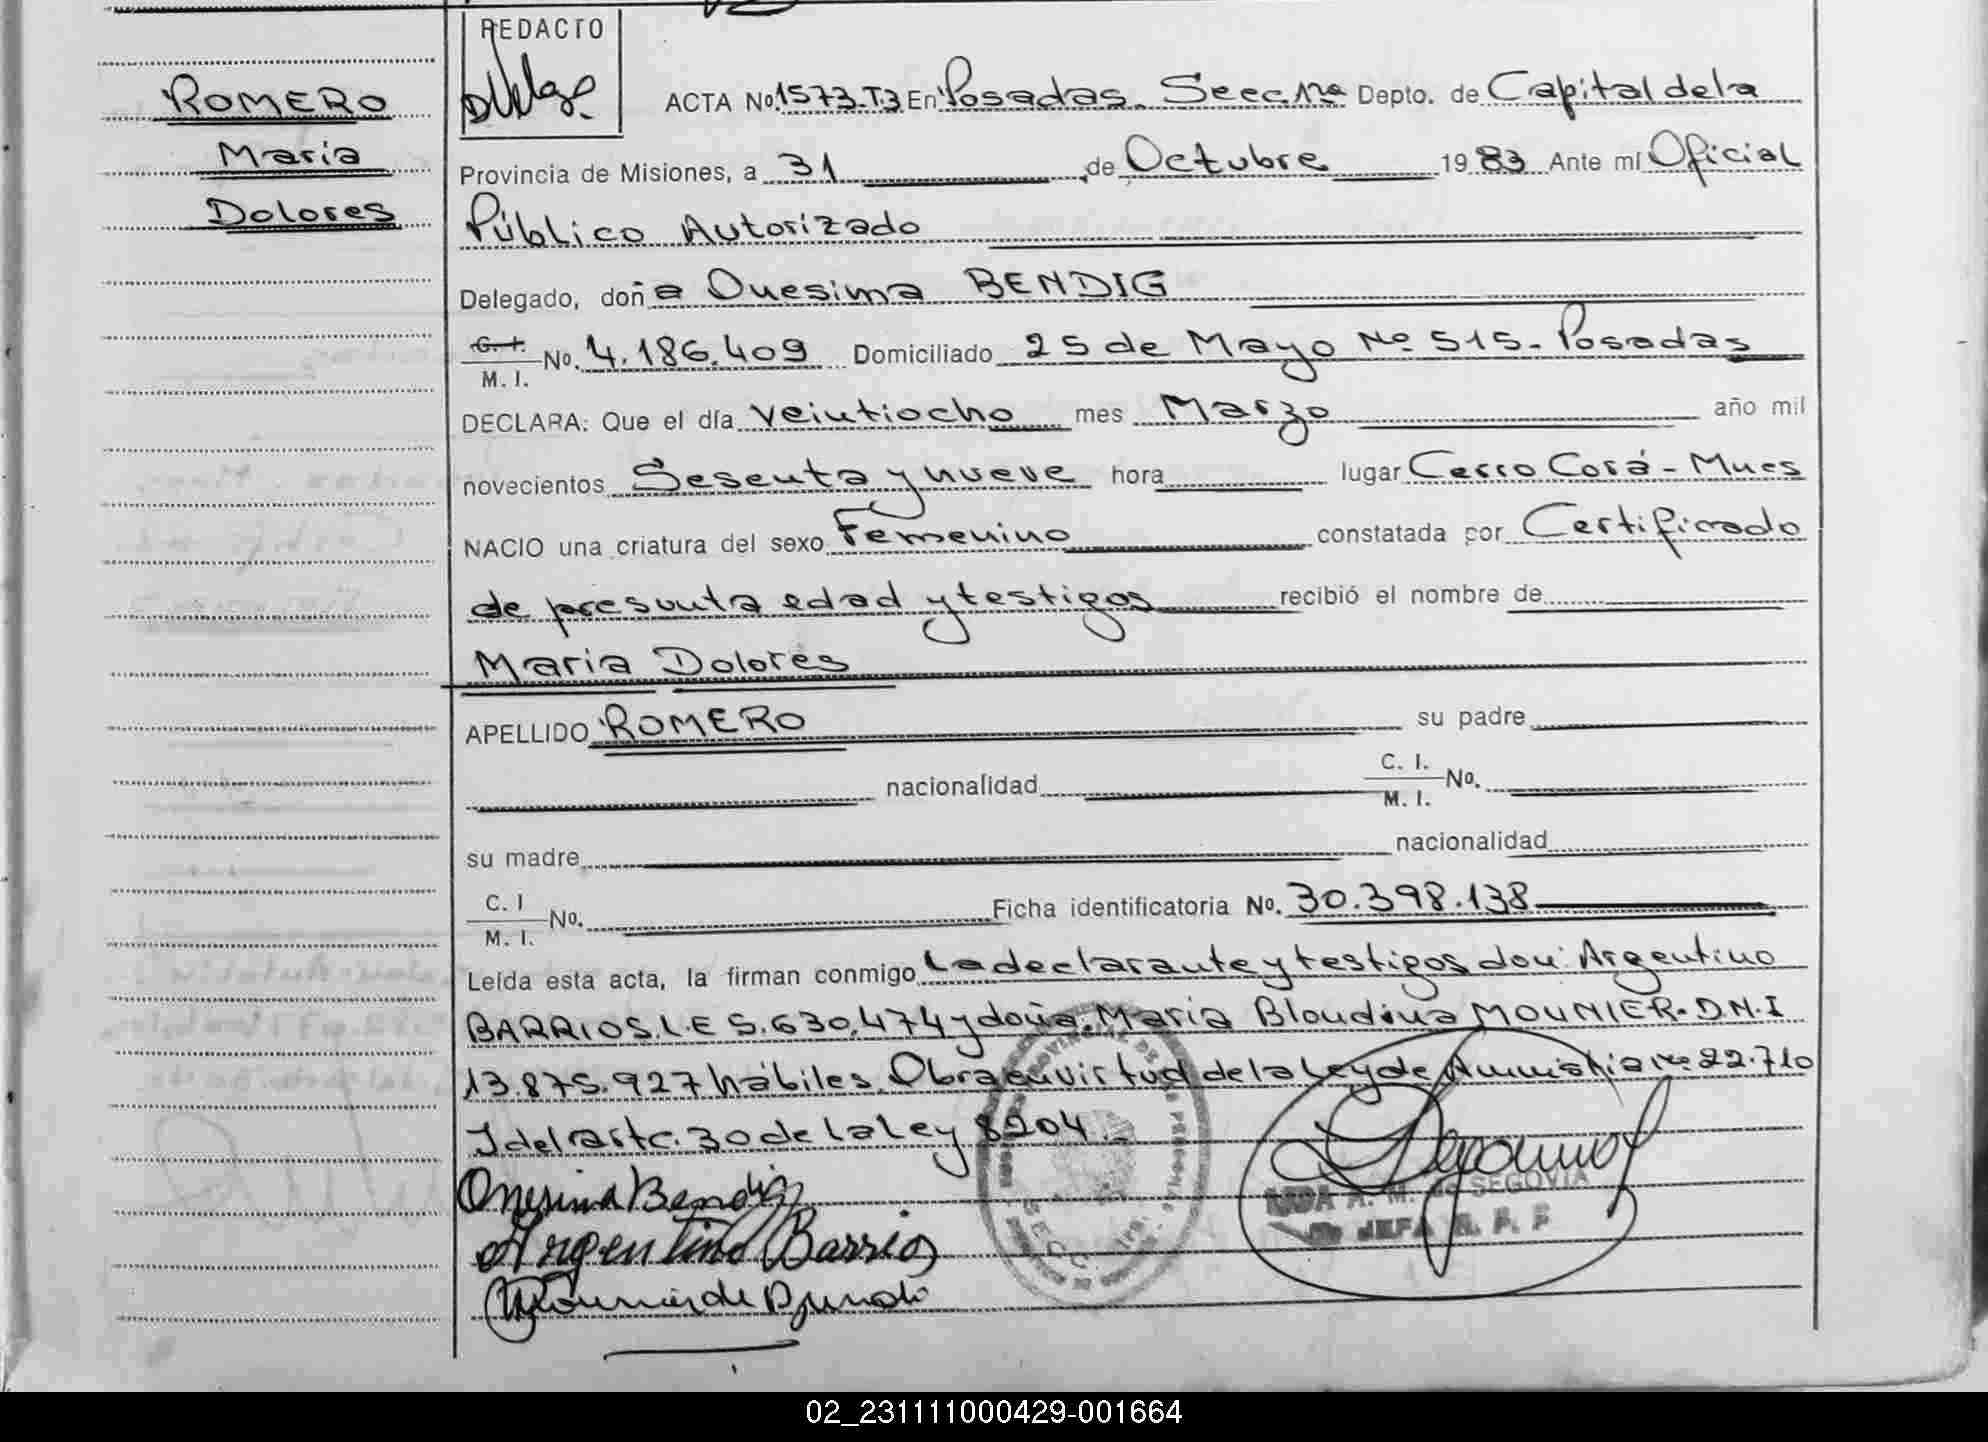 REDACTO
ROMERO
María
Dolores
ACTA No. 1573.T.3 En Posadas. Secc. 1ra Depto. de Capital de la
Provincia de Misiones, a 31 de Octubre 19 83 Ante mí Oficial
Público Autorizado
Delegado, doña Onesima BENDIG
C. I.
M. I. No. 4.186.409 Domiciliado 25 de Mayo No 515. Posadas
DECLARA: Que el día veintiocho mes Marzo año mil
novecientos Sesenta y nueve hora lugar Cerro Corá - Mnes
NACIO una criatura del sexo Femenino constatada por Certificado
de presunta edad y testigos recibió el nombre de
María Dolores
APELLIDO ROMERO su padre
nacionalidad C. I.
M. I. No.
su madre nacionalidad
C. I
M. I. No. Ficha identificatoria No. 30.398.138
Leída esta acta, la firman conmigo La declarante y testigos don: Argentino
BARRIOS L.E 5.630.474 y doña. María Blandina MOUNIER. D.N.I
13.875.927 hábiles. Obra en virtud de la Ley de Amnistía no 22.710
y del artc. 30 de la Ley 8204.
Onesima Bendig
Argentino Barrios
A. M. de SEGOVIA
JEFA R. P. P
02_231111000429-001664